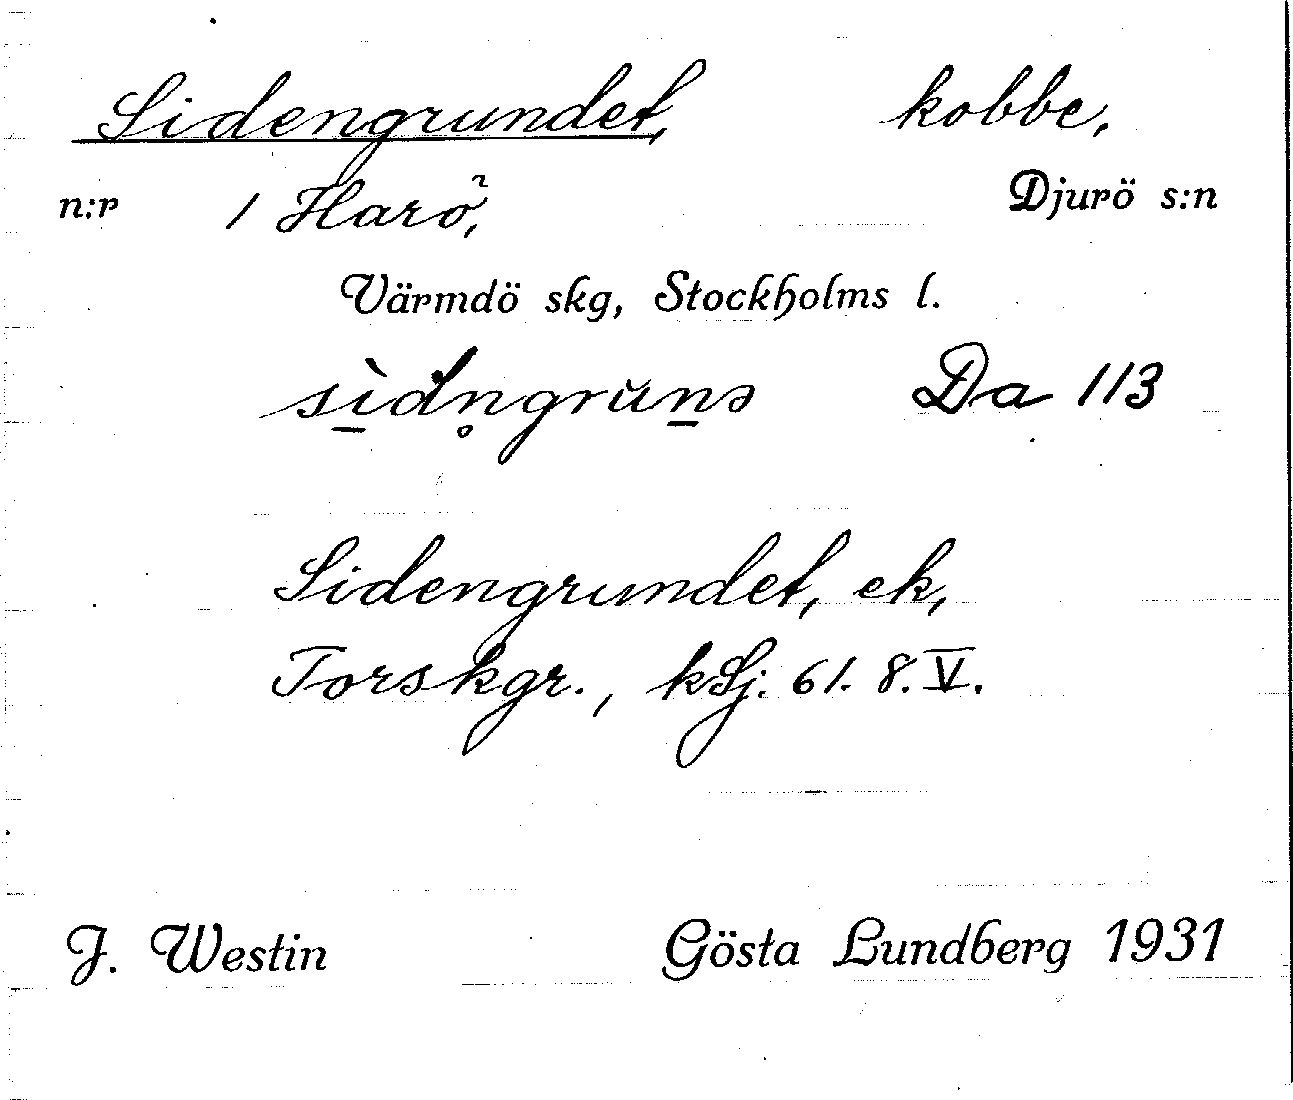 Sidengrundet, kobbe,
n:r 1 Harö, Djurö s:n
Värmdö skg, Stockholms l.
sìdn̥grŭnə Da 113
Sidengrundet, ek,
Torskgr., kSj. 61. 8. V.
J. Westin Gösta Lundberg 1931